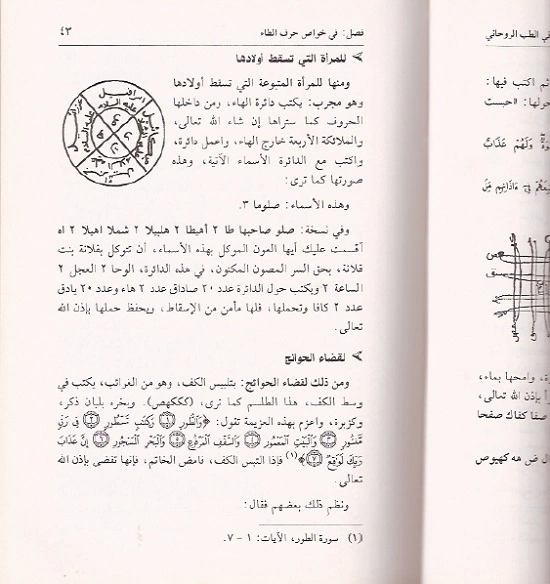 فصل: في خواص حرف الطاء
٤٣
➢ للمرأة التي تسقط أولادها
ومنها للمرأة المتبوعة التي تسقط أولادها
وهو مجرب: يكتب دائرة الهاء، ومن داخلها
الحروف كما ستراها إن شاء الله تعالى،
والملائكة الأربعة خارج الهاء، واعمل دائرة،
واكتب مع الدائرة الأسماء الآتية، وهذه
صورتها كما ترى:
وهذه الأسماء: صلوما ٣.
وفي نسخة: صلو صاحبها طا ٢ أهيطا ٢ هلبيلا ٢ شملا اهيلا ٢ اه
أقسمت عليك أيها العون الموكل بهذه الأسماء، أن تتوكل بفلانة بنت
فلانة، بحق السر المصون المكنون، في هذه الدائرة، الوحا ٢ العجل ٢
الساعة ٢ ويكتب حول الدائرة عدد ٢٠ صاداق عدد ٢ هاء وعدد ٢٠ يادق
عدد ٢ كافا وتحملها، فلها مأمن من الإسقاط، ويحفظ حملها بإذن الله
تعالى.
➢ لقضاء الحوائج
ومن ذلك لقضاء الحوائج: بتلبيس الكف، وهو من الغرائب، يكتب في
وسط الكف، هذا الطلسم كما ترى، (كككهص). وبخره بلبان ذكر،
وكزبرة، واعزم بهذه العزيمة تقول: ﴿وَالطُّورِ ۝١ وَكِتَابٍ مَسْطُورٍ ۝٢ فِي رَقٍّ
مَنْشُورٍ ۝٣ وَالْبَيْتِ الْمَعْمُورِ ۝٤ وَالسَّقْفِ الْمَرْفُوعِ ۝٥ وَالْبَحْرِ الْمَسْجُورِ ۝٦ إِنَّ عَذَابَ
رَبِّكَ لَوَاقِعٌ ۝٧﴾(١) فإذا التبس الكف، فامض الخاتم، فإنها تقضى بإذن الله
تعالى.
ونظم ذلك بعضهم فقال:
(١) سورة الطور، الآيات: ١ - ٧.
في الطب الروحاني
ثم اكتب فيها:
حولها: «حبست
وَلَهُمْ عَذَابٌ
فِي ءَاذَانِهِم مِّنَ
، وامحها بماء،
بإذن الله تعالى،
صفا كفاك صفحا
ض هه كهيوص